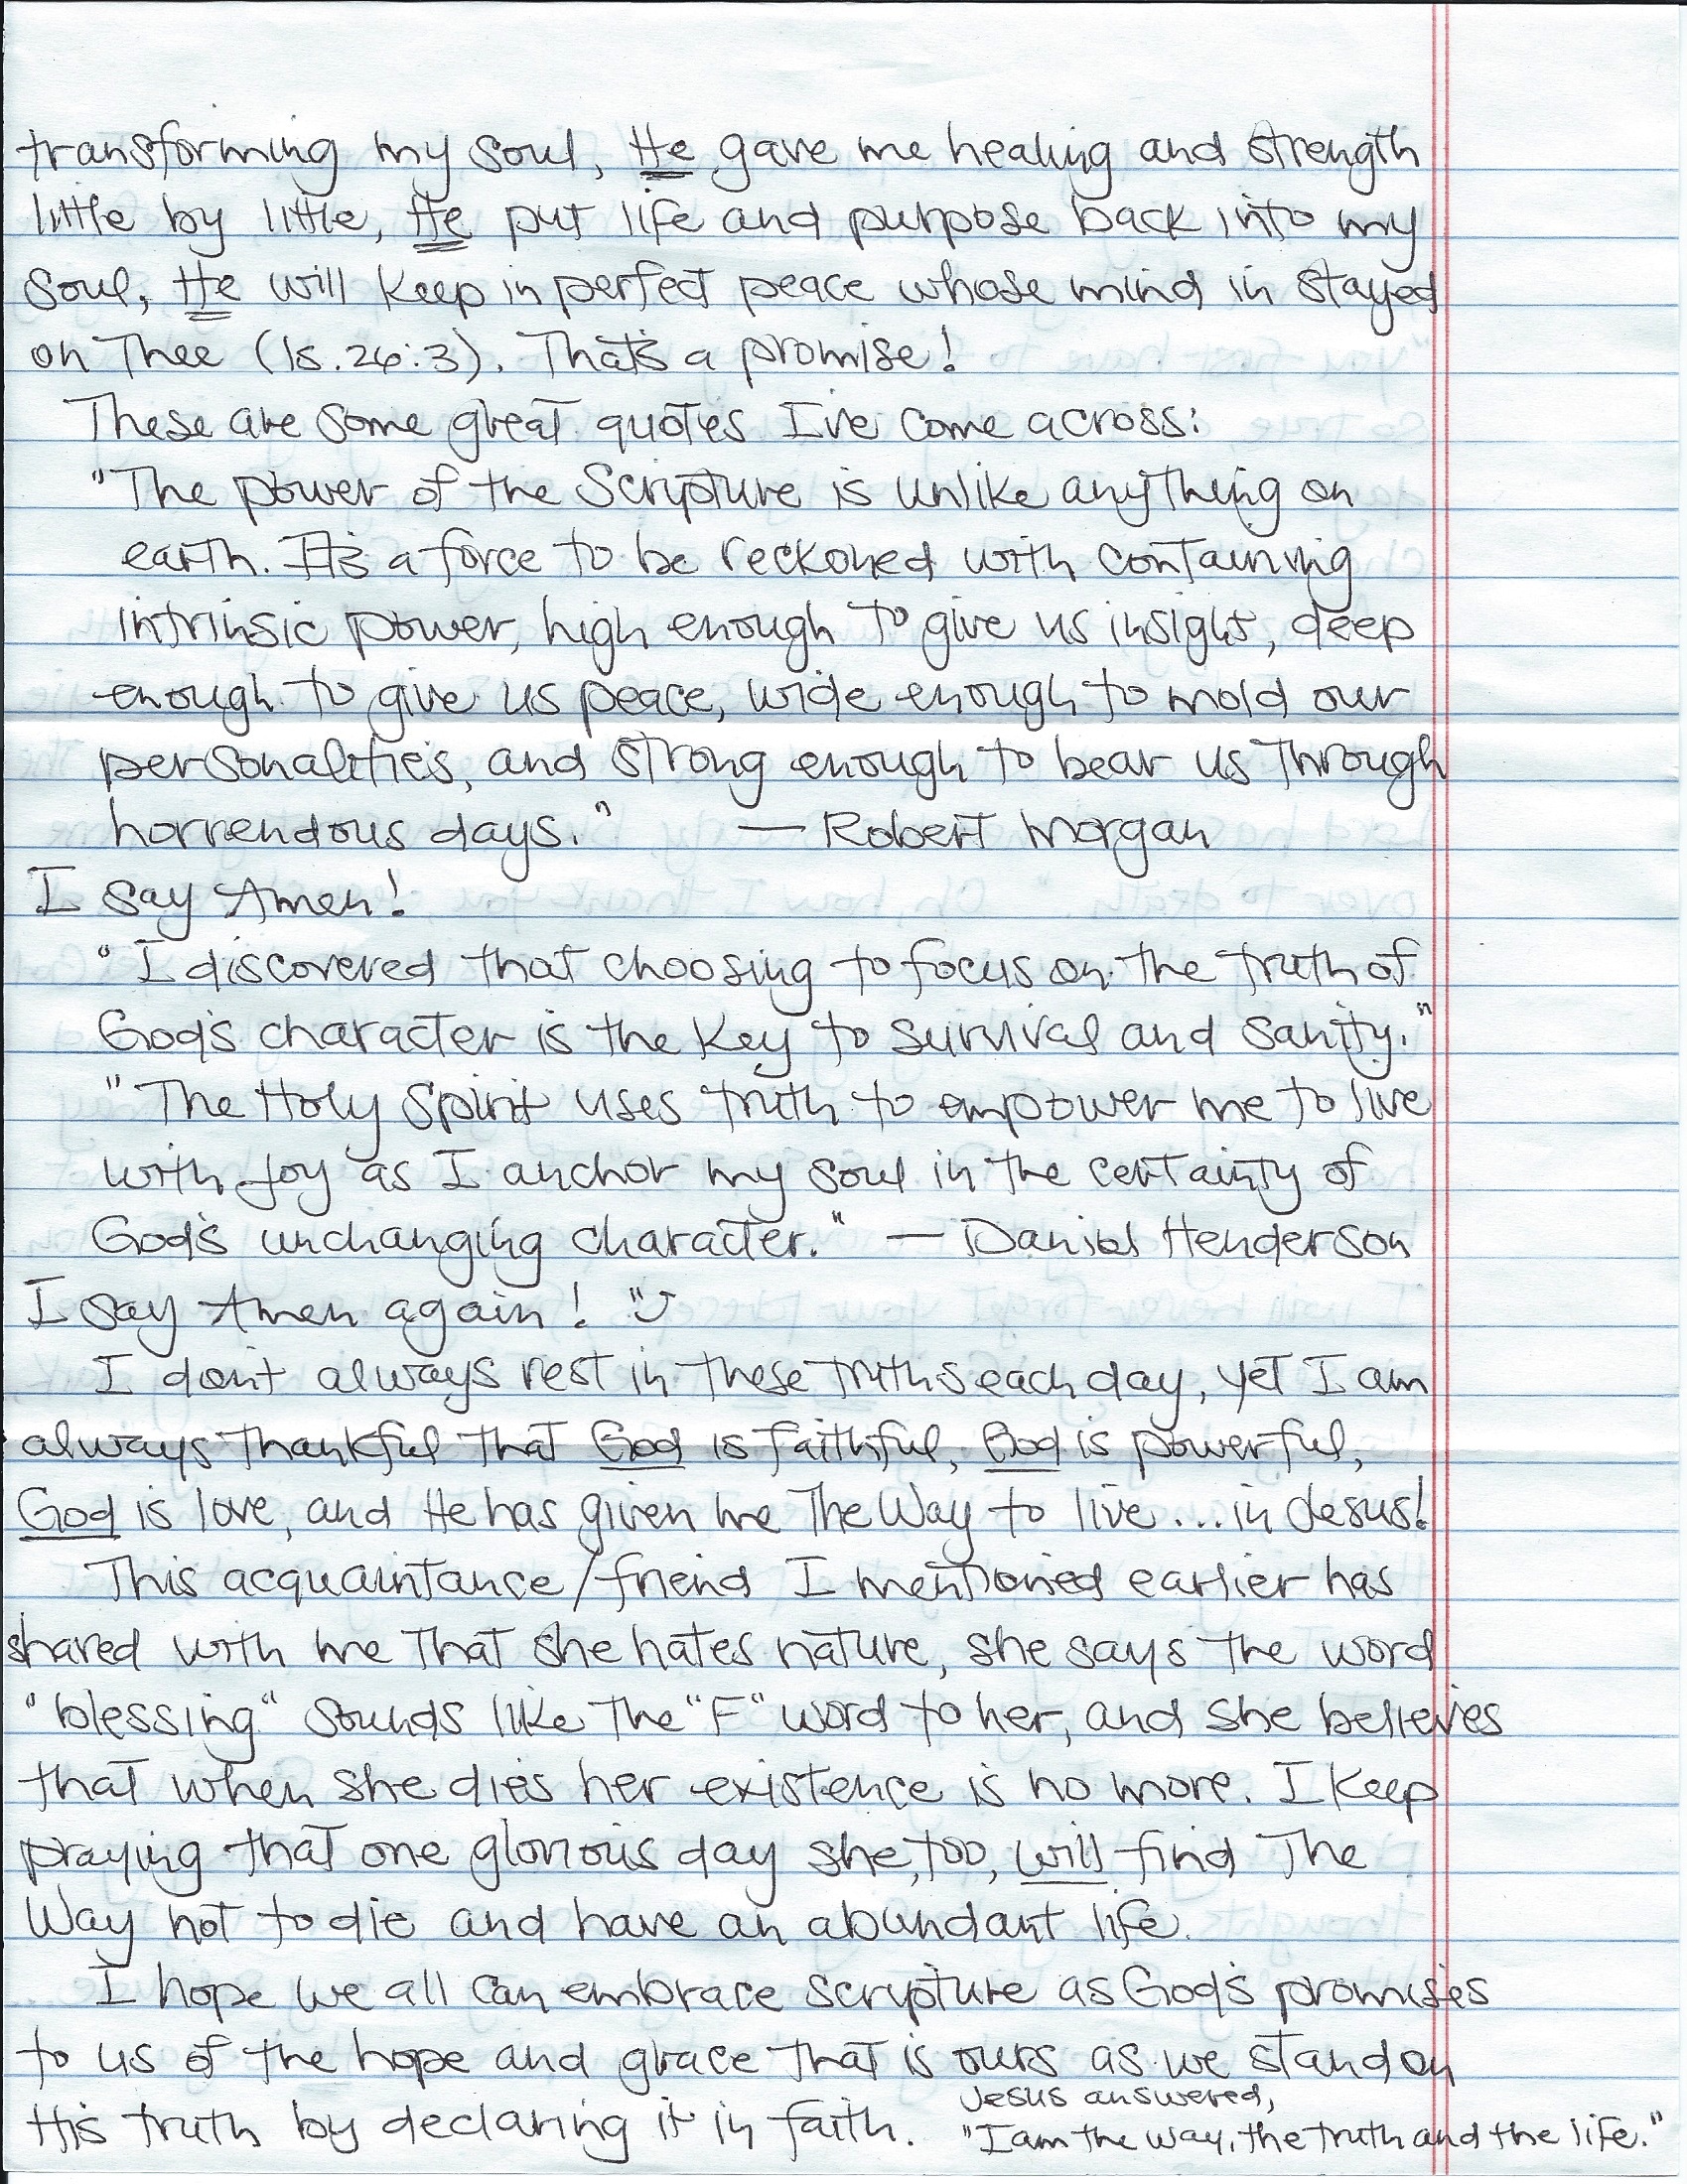 transforming my soul, He gave me healing and strength
little by little, He put life and purpose back into my
soul, He will keep in perfect peace whose mind in stayed
on Thee (Is. 26:3). That's a promise!
These are some great quotes I've come across:
"The power of the Scripture is unlike anything on
earth. It's a force to be reckoned with containing
intrinsic power, high enough to give us insight, deep
enough to give us peace, wide enough to mold our
personalities, and strong enough to bear us through
horrendous days." — Robert Morgan
I say Amen!
"I discovered that choosing to focus on the truth of
God's character is the key to survival and sanity."
"The Holy Spirit uses truth to empower me to live
with joy as I anchor my soul in the certainty of
God's unchanging character." — Daniel Henderson
I say Amen again!
I don't always rest in these truths each day, yet I am
always thankful that God is faithful, God is powerful,
God is love, and He has given me The Way to live...in Jesus!
This acquaintance/friend I mentioned earlier has
shared with me that she hates nature, she says the word
"blessing" sounds like the "F" word to her, and she believes
that when she dies her existence is no more. I keep
praying that one glorious day she, too, will find The
Way not to die and have an abundant life.
I hope we all can embrace scripture as God's promises
to us of the hope and grace that is ours as we stand on
His truth by declaring it in faith.
Jesus answered,
"I am the way, the truth and the life."